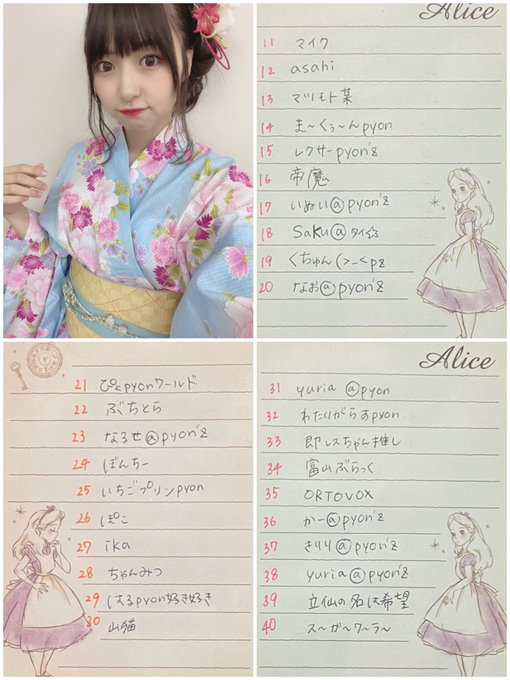 Alice
11 マイク
12 asahi
13 マツモト某
14 ま～くぅ～んpyon
15 レクサーpyon'z
16 帝魔
17 いぬい@pyon'z
18 Saku@タイ☆
19 くちゅん(>_<pz
20 なお@pyon'z
21 ぴとpyonワールド
22 ぶちとら
23 なるせ@pyon'z
24 ぼんちー
25 いちごプリンpyon
26 ぽこ
27 ika
28 ちゃんみつ
29 はるpyon好き好き
30 山猫
Alice
31 yuria @pyon
32 わたりがらすpyon
33 即レスちゃん推し
34 富山ぶらっく
35 ORTOVOX
36 かー@pyon'z
37 きりり@pyon'z
38 yuria@pyon'z
39 立仙の名は希望
40 ス～ガ～ワ～ラ～